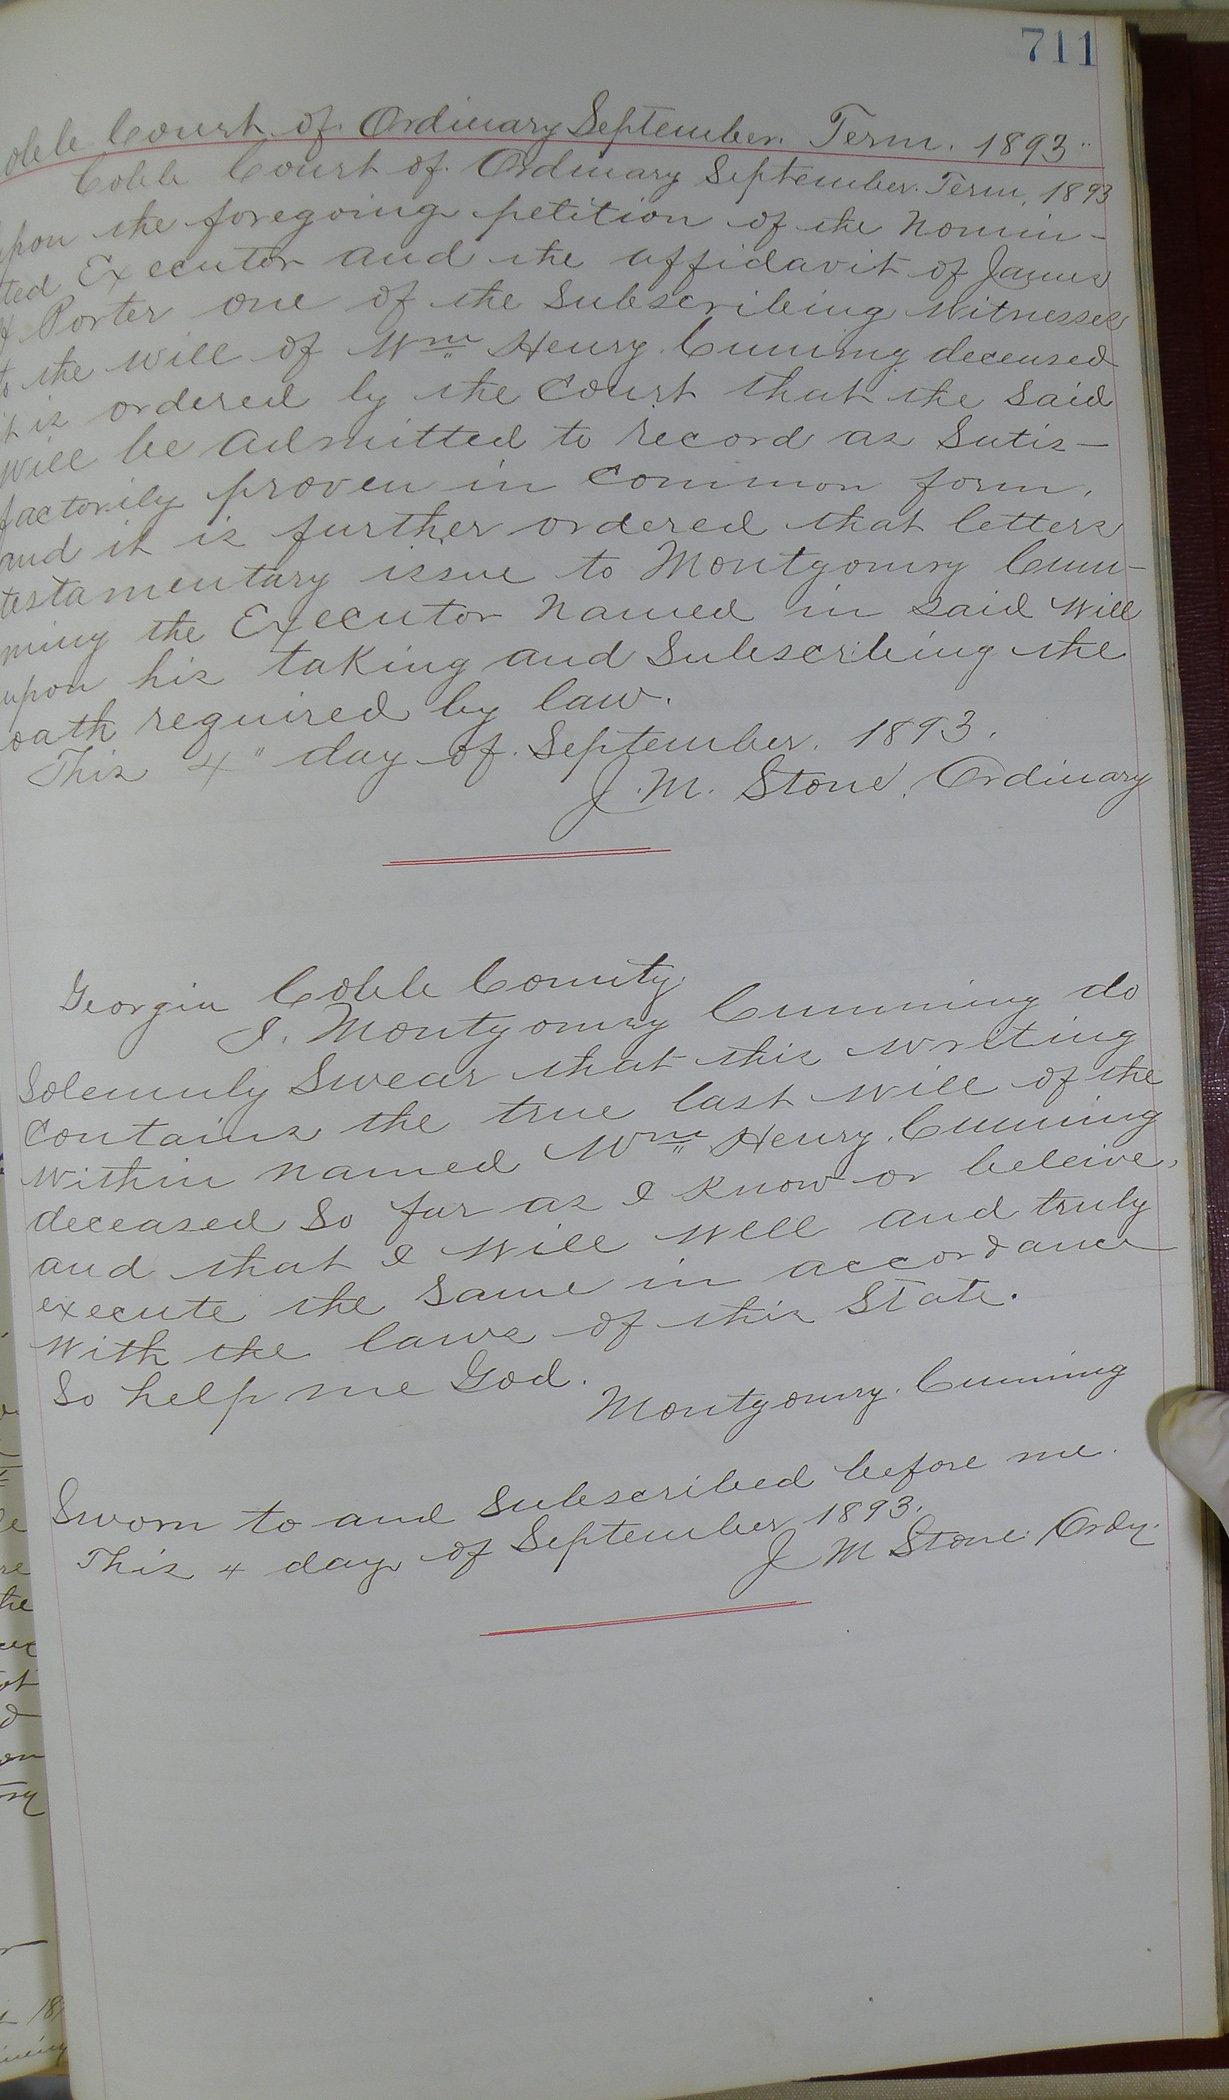 711
Cobb Court of Ordinary September Term. 1893
Cobb Court of Ordinary September Term, 1893
upon the foregoing petition of the nomin-
ted Executor and the affidavit of James
Porter one of the Subscribing Witnesses
to the will of Wm Henry Cumming deceased
it is ordered by the Court that the Said
Will be admitted to record as Satis-
factorily proven in Common form,
and it is further ordered that letters
testamentary issue to Montgomry Cum-
ming the Executor named in said Will
upon his taking and Subscribing the
oath required by law.
This 4" day of September. 1893.
J. M. Stone, Ordinary
Georgia Cobb County
I, Montgomry Cumming do
Solemnly Swear that this writing
Contains the true last will of the
Within named Wm Henry Cumming
deceased So far as I know or beleive,
and that I Will Well and truly
execute the Same in accordance
With the laws of this State.
So help me God.
Montgomry Cumming
Sworn to and Subscribed before me.
This 4 day of September 1893.
J M Stone Ordy.